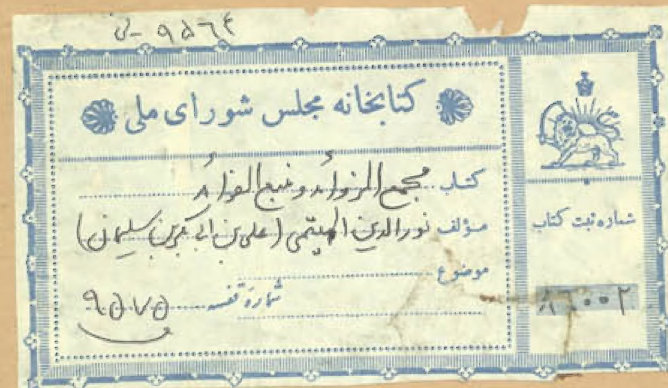 ۹۵۶۴
کتابخانه مجلس شورای ملی
کتاب مجمع الزوائد و منبع الفوائد
مؤلف نورالدین الهیثمی (علی بن ابی بکر بن سلیمان)
موضوع
شماره قفسه ۹۵۷۵
شماره ثبت کتاب